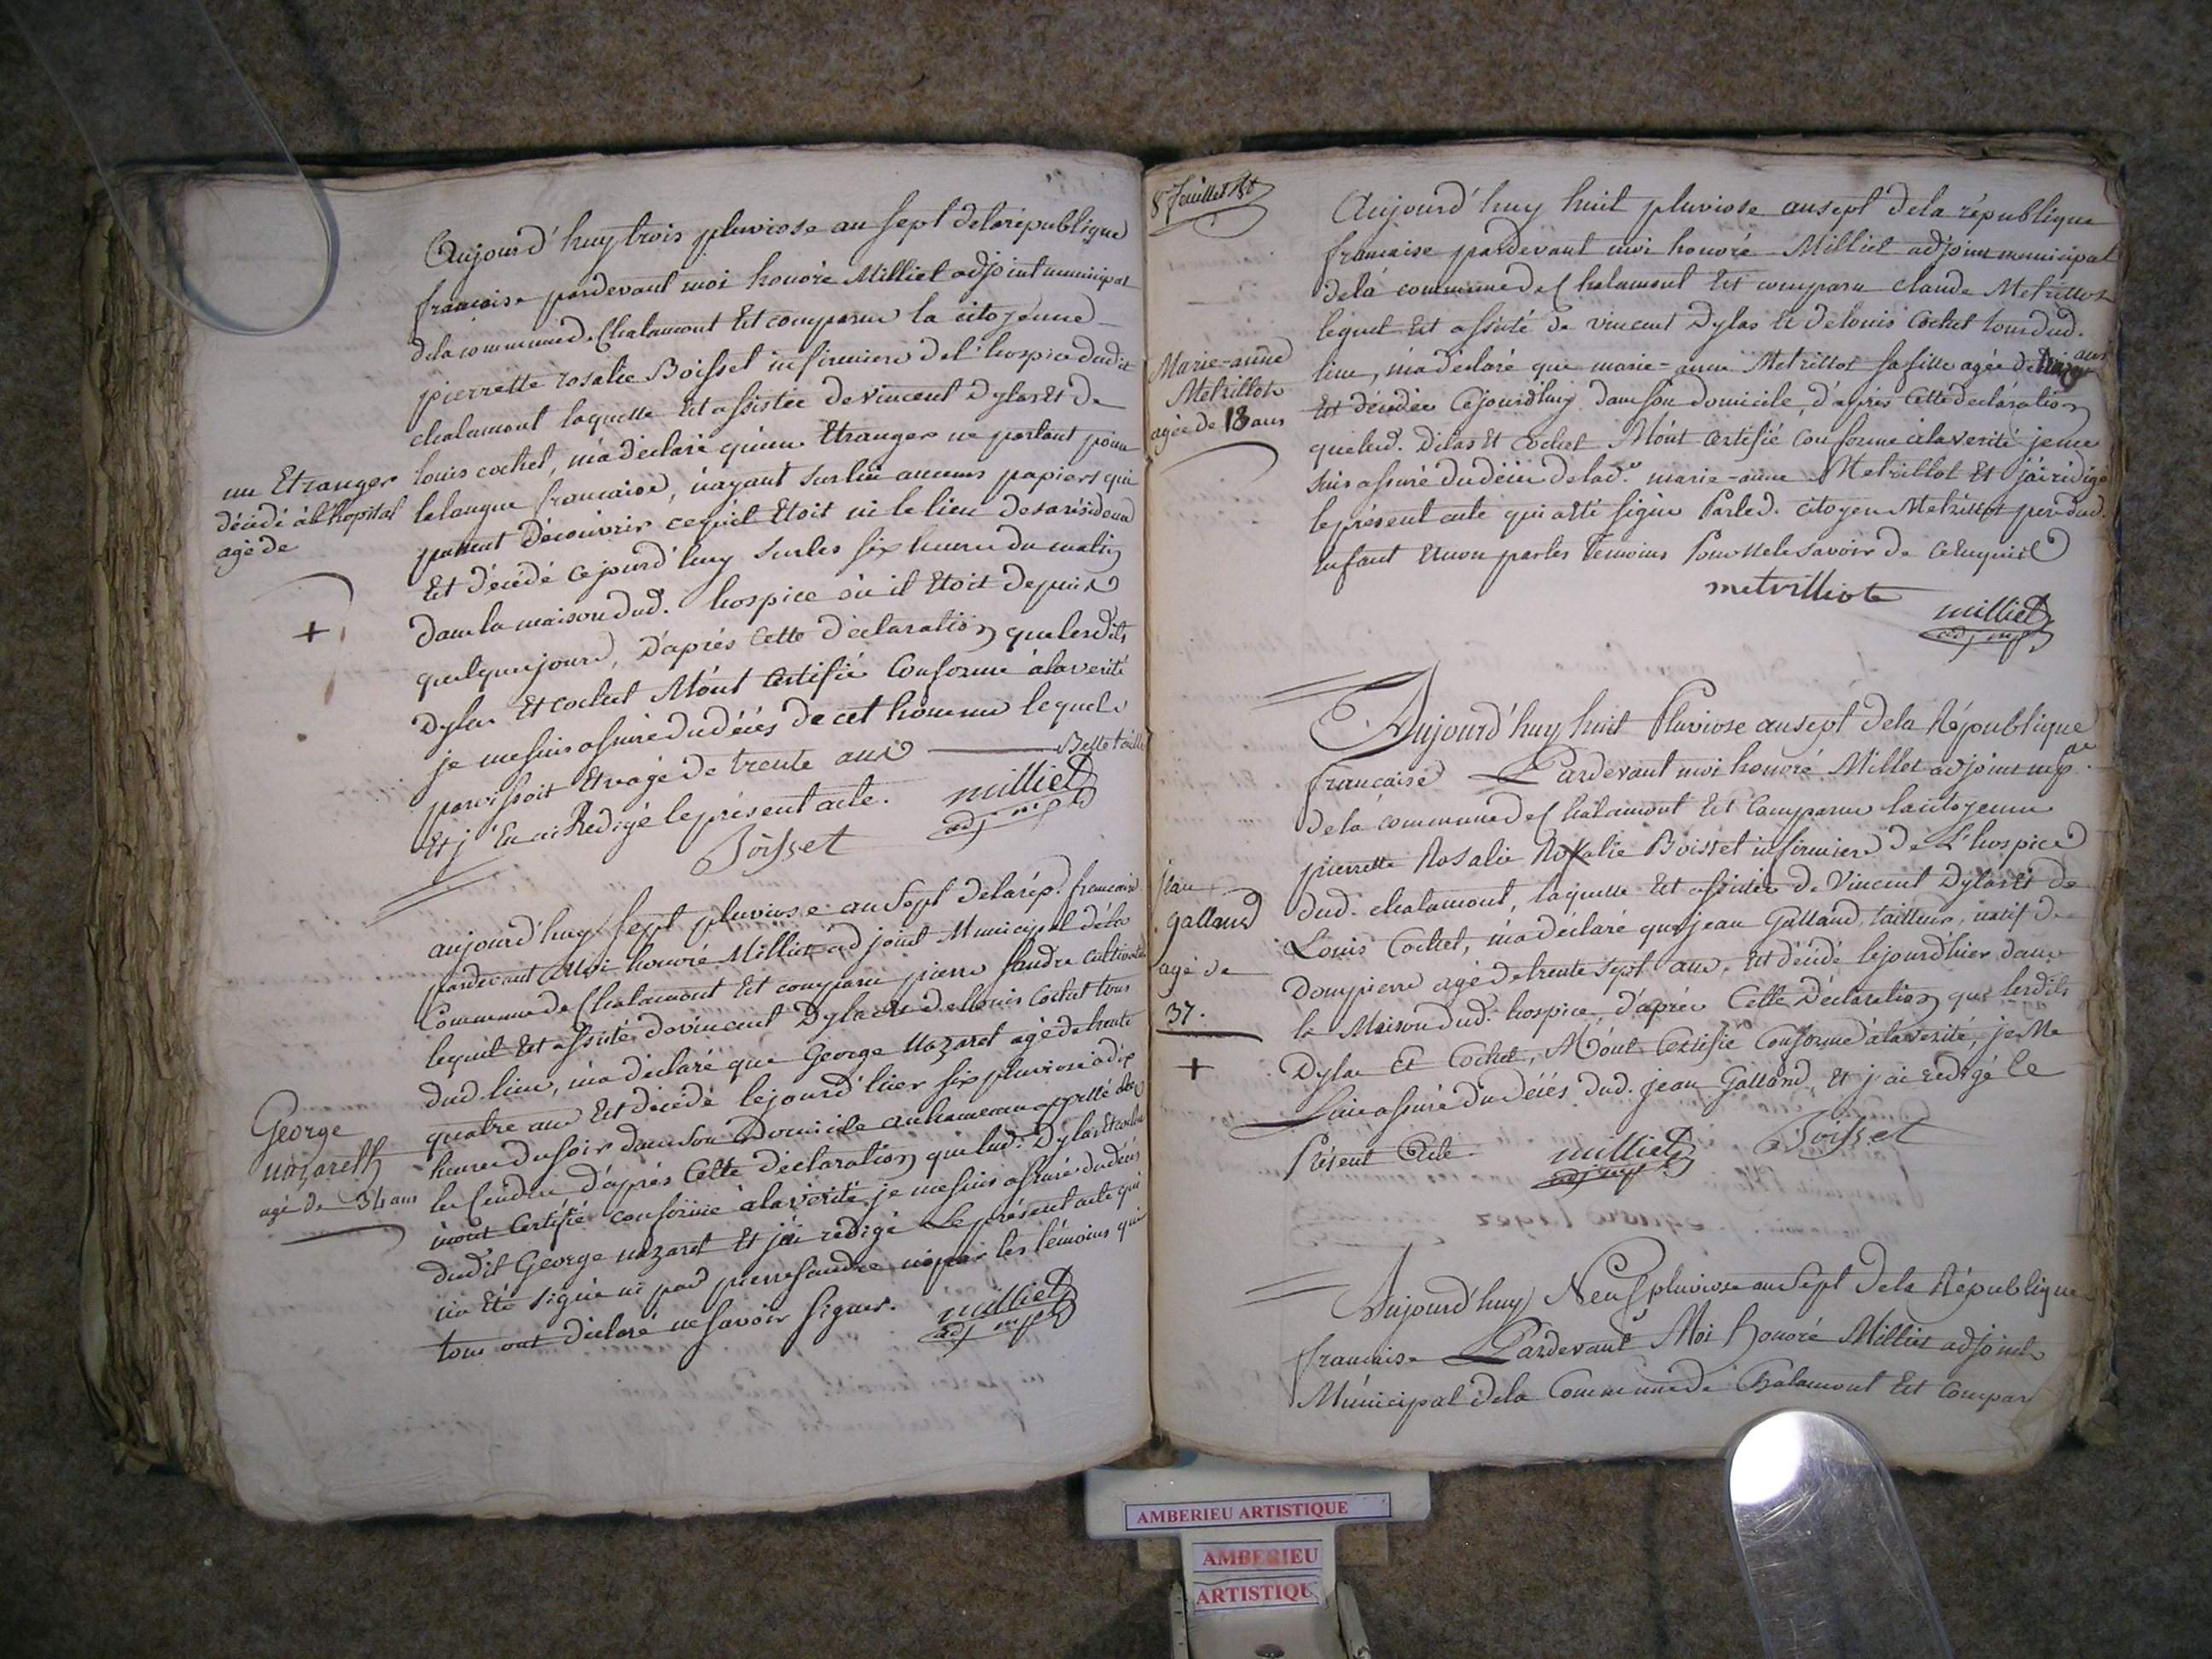 Aujourd'huy trois pluviose an sept de la république
francaise pardevant moi honoré Milliet adjoint municipal
de la commune de Chalamont Est comparue la citoyenne
pierrette rosalie Boisset infirmiere de l'hospice dudit
chalamont laquelle Est assistée de Vincent Dylas Et de
louis cochet, m'a declaré qu'un Etranger ne parlant point
la langue francaise, n'ayant sur lui aucuns papiers qui
puissent découvrir ce qu'il Etoit ni le lieu de sa résidence
Est décédé cejourd'huy sur les six heures du matin
dans la maison dud. hospice où il Etoit depuis
quelque jours, D'aprés Cette déclaration que lesdits
Dylas Et cochet M'ont Certifié Conforme à la verité
je me suis assuré du décés de cet homme lequel
paroissoit Etre agé de trente ans Belle taille
Et j'En ai Rédigé le présent acte.
Boisset
milliet
adj mpl
un Etranger
décédé à l'hopital
agé de
+
aujourd'huy sept pluviose an Sept de la rép. francaise
pardevant Moi honoré Milliet adjoint Municipal de la
Commune de Chalamont Est comparu pierre fandre cultivateur
lequel Est assisté de vincent Dylas Et de Louis Cochet tous
dud lieu, m'a déclaré que George Nazaret agé de trente
quatre ans Est décédé le jour d'hier six pluviose à dix
heures du soir dans son Domicile au hameau appellé
d'aprés Cette déclaration que lesd. Dylas Et cochet
m'ont Certifié conforme à la vérité je me suis assuré du décés
dudit George nazaret Et j'ai redigé le présent acte qui
n'a Eté signé ni par pierre fandre ni par les témoins qui
tous ont déclaré ne savoir signer.
milliet
adj mpl
George
nazareth
agé de 34 ans
8 feuillet
Aujourd'huy huit pluviose an sept de la république
francaise pardevant moi honoré Milliet adjoint municipal
de la commune de Chalamont Est comparu claude Metrillot
lequel Est assisté de vincent Dylas Et de louis Cochet tous dud.
lieu, m'a déclaré que marie-anne Metrillot sa fille agée de ans
Est décédée Cejourd'huy dans son domicile, d'aprés Cette déclaration
que lesd. Dilas Et Cochet M'ont Certifié Conforme à la verité je me
suis assuré du décés de lad. marie-anne Metrillot Et j'ai rédigé
le présent acte qui a été signé Par led. citoyen Metrillot pere dud.
Enfant Et non par les Temoins Pour ne le savoir de ce Enquis
metrilliote
milliet
adj mpl
Marie-anne
Metrillot
agée de 18 ans
Aujourd'huy huit Pluviose an sept de la République
francaise Pardevant moi honoré Milliet adjoint mpal
de la commune de Chalamont Est Comparue la citoyenne
pierrette Rosalie Rosalie Boisset infirmiere de L'hospice
dud. chalamont, laquelle Est assistée de Vincent Dylas Et de
Louis Cochet, m'a déclaré que jean Galland, tailleur, natif de
Dompierre agé de trente sept ans, Est décédé le jourd'hier dans
la Maison dud. hospice, d'aprés Cette Déclaration que lesdits
Dylas Et Cochet, M'ont Certifié Conforme à la verité, je Me
Suis assuré du décés dud. jean Galland, Et j'ai redigé le
Présent Acte
milliet
adj mpl
Boisset
jean
galland
agé de
37.
+
Aujourd'huy Neuf pluviose an Sept de la République
francaise Pardevant Moi honoré Milliet adjoint
Municipal de la Commune de Chalamont Est Compar
AMBERIEU ARTISTIQUE
AMBERIEU
ARTISTIQU